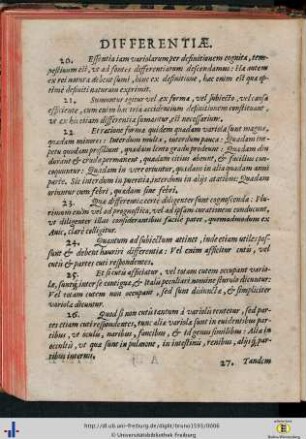 DIFFERENTIÆ.
20. Essentia iam variolarum per definitionem cognita, tem-
pestiuum est, ut ad fontes differentiarum descendamus: Hæ autem
ex rei natura debent sumi, hinc ex definitione, hæc enim est quæ op-
timè definiti naturam exprimit.
21. Sumuntur igitur vel ex forma, vel subiecto, vel causa
efficiente, cum enim hæc tria accidentium definitionem constituant,
ut ex his etiam differentia sumantur, est necessarium.
22. Et ratione formæ quidem quædam variolæ sunt magnæ,
quædam minores: Interdum multæ, interdum paucæ: Quædam im-
petu quodam prosiliunt, quædam lento gradu prodeunt: Quædam diu
durant & crudæ permanent, quædam citius abeunt, & facilius con-
coquuntur: Quædam in una oriuntur, quædam in alia quadam anni
parte. Sic interdum in pueritia, interdum in alijs ætatibus: Quædam
oriuntur cum febri, quædam sine febri.
23. Quæ differentiæ certè diligenter sunt cognoscendæ: Plu-
rimum enim vel ad prognostica, vel ad ipsam curationem conducunt,
ut diligenter illas considerantibus facilè patet, quemadmodum ex
Auic, clarè colligitur.
24. Quantum ad subiectum attinet, inde etiam utiles pos-
sunt & debent hauriri differentiæ: Vel enim afficitur cutis, vel
cutis & partes cuti respondentes,
25. Et si cutis afficiatur, vel totam cutem occupant variolæ
, suntq; inter se contiguæ, & Italis peculiari nomine dicuntur:
Vel totam cutem non occupant, sed sunt disiunctæ, & simpliciter
variolæ dicuntur.
26. Quod si non cutis tantum à variolis tenetur, sed par-
tes etiam cuti respondentes, tunc aliæ variolæ sunt in euidentibus par-
tibus, ut oculis, naribus, faucibus, & id genus similibus: Aliæ in
occultis, ut quæ sunt in pulmone, in intestinis, renibus, alijsq; par-
tibus internis.
27. Tandem
http://dl.ub.uni-freiburg.de/diglit/bruno1591/0006
© Universitätsbibliothek Freiburg